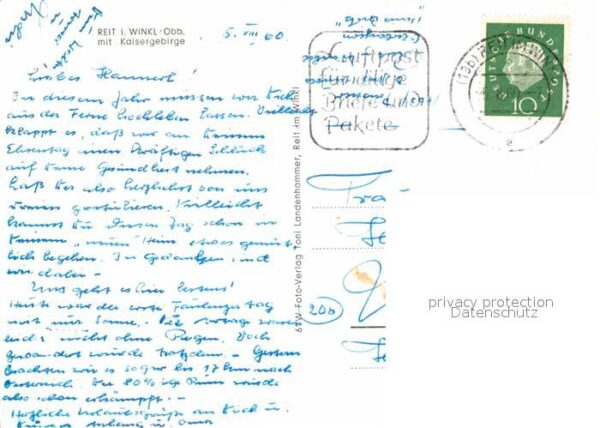 REIT i. WINKL · Obb.
mit Kaisergebirge
5. VIII 60
Luftpost
für eilige
Briefe und
Pakete
DEUTSCHE BUNDESPOST
10
Liebes Hannerl!
In diesem Jahr müssen wir Dich
aus der Ferne hochleben lassen. Vielleicht
klappt es, daß wir an Deinem
Ehrentag einen kräftigen Schluck
auf Deine Gesundheit nehmen.
Laß Dir also herzlichst von uns
gratulieren. Vielleicht
kannst Du diesen Tag schon in
Deinem „neuen" Heim etwas gemüt
lich begehen. In Gedanken sind
wir dabei –
Uns geht es hier bestens!
Heute war der erste Tag
mit Sonne. – Die Vortage waren
leider nicht ohne Regen. Doch
gewandert wurde trotzdem – Gestern
brachten wir es sogar bis 17 km nach
Österreich. Der 80% ige Rum wurde
also schon erkämpft. –
Herzliche Urlaubsgrüße an Dich u.
Deinen Anhang u. Oma
617W Foto-Verlag Toni Landenhammer, Reit im Winkl
Frä
20b
privacy protection
Datenschutz